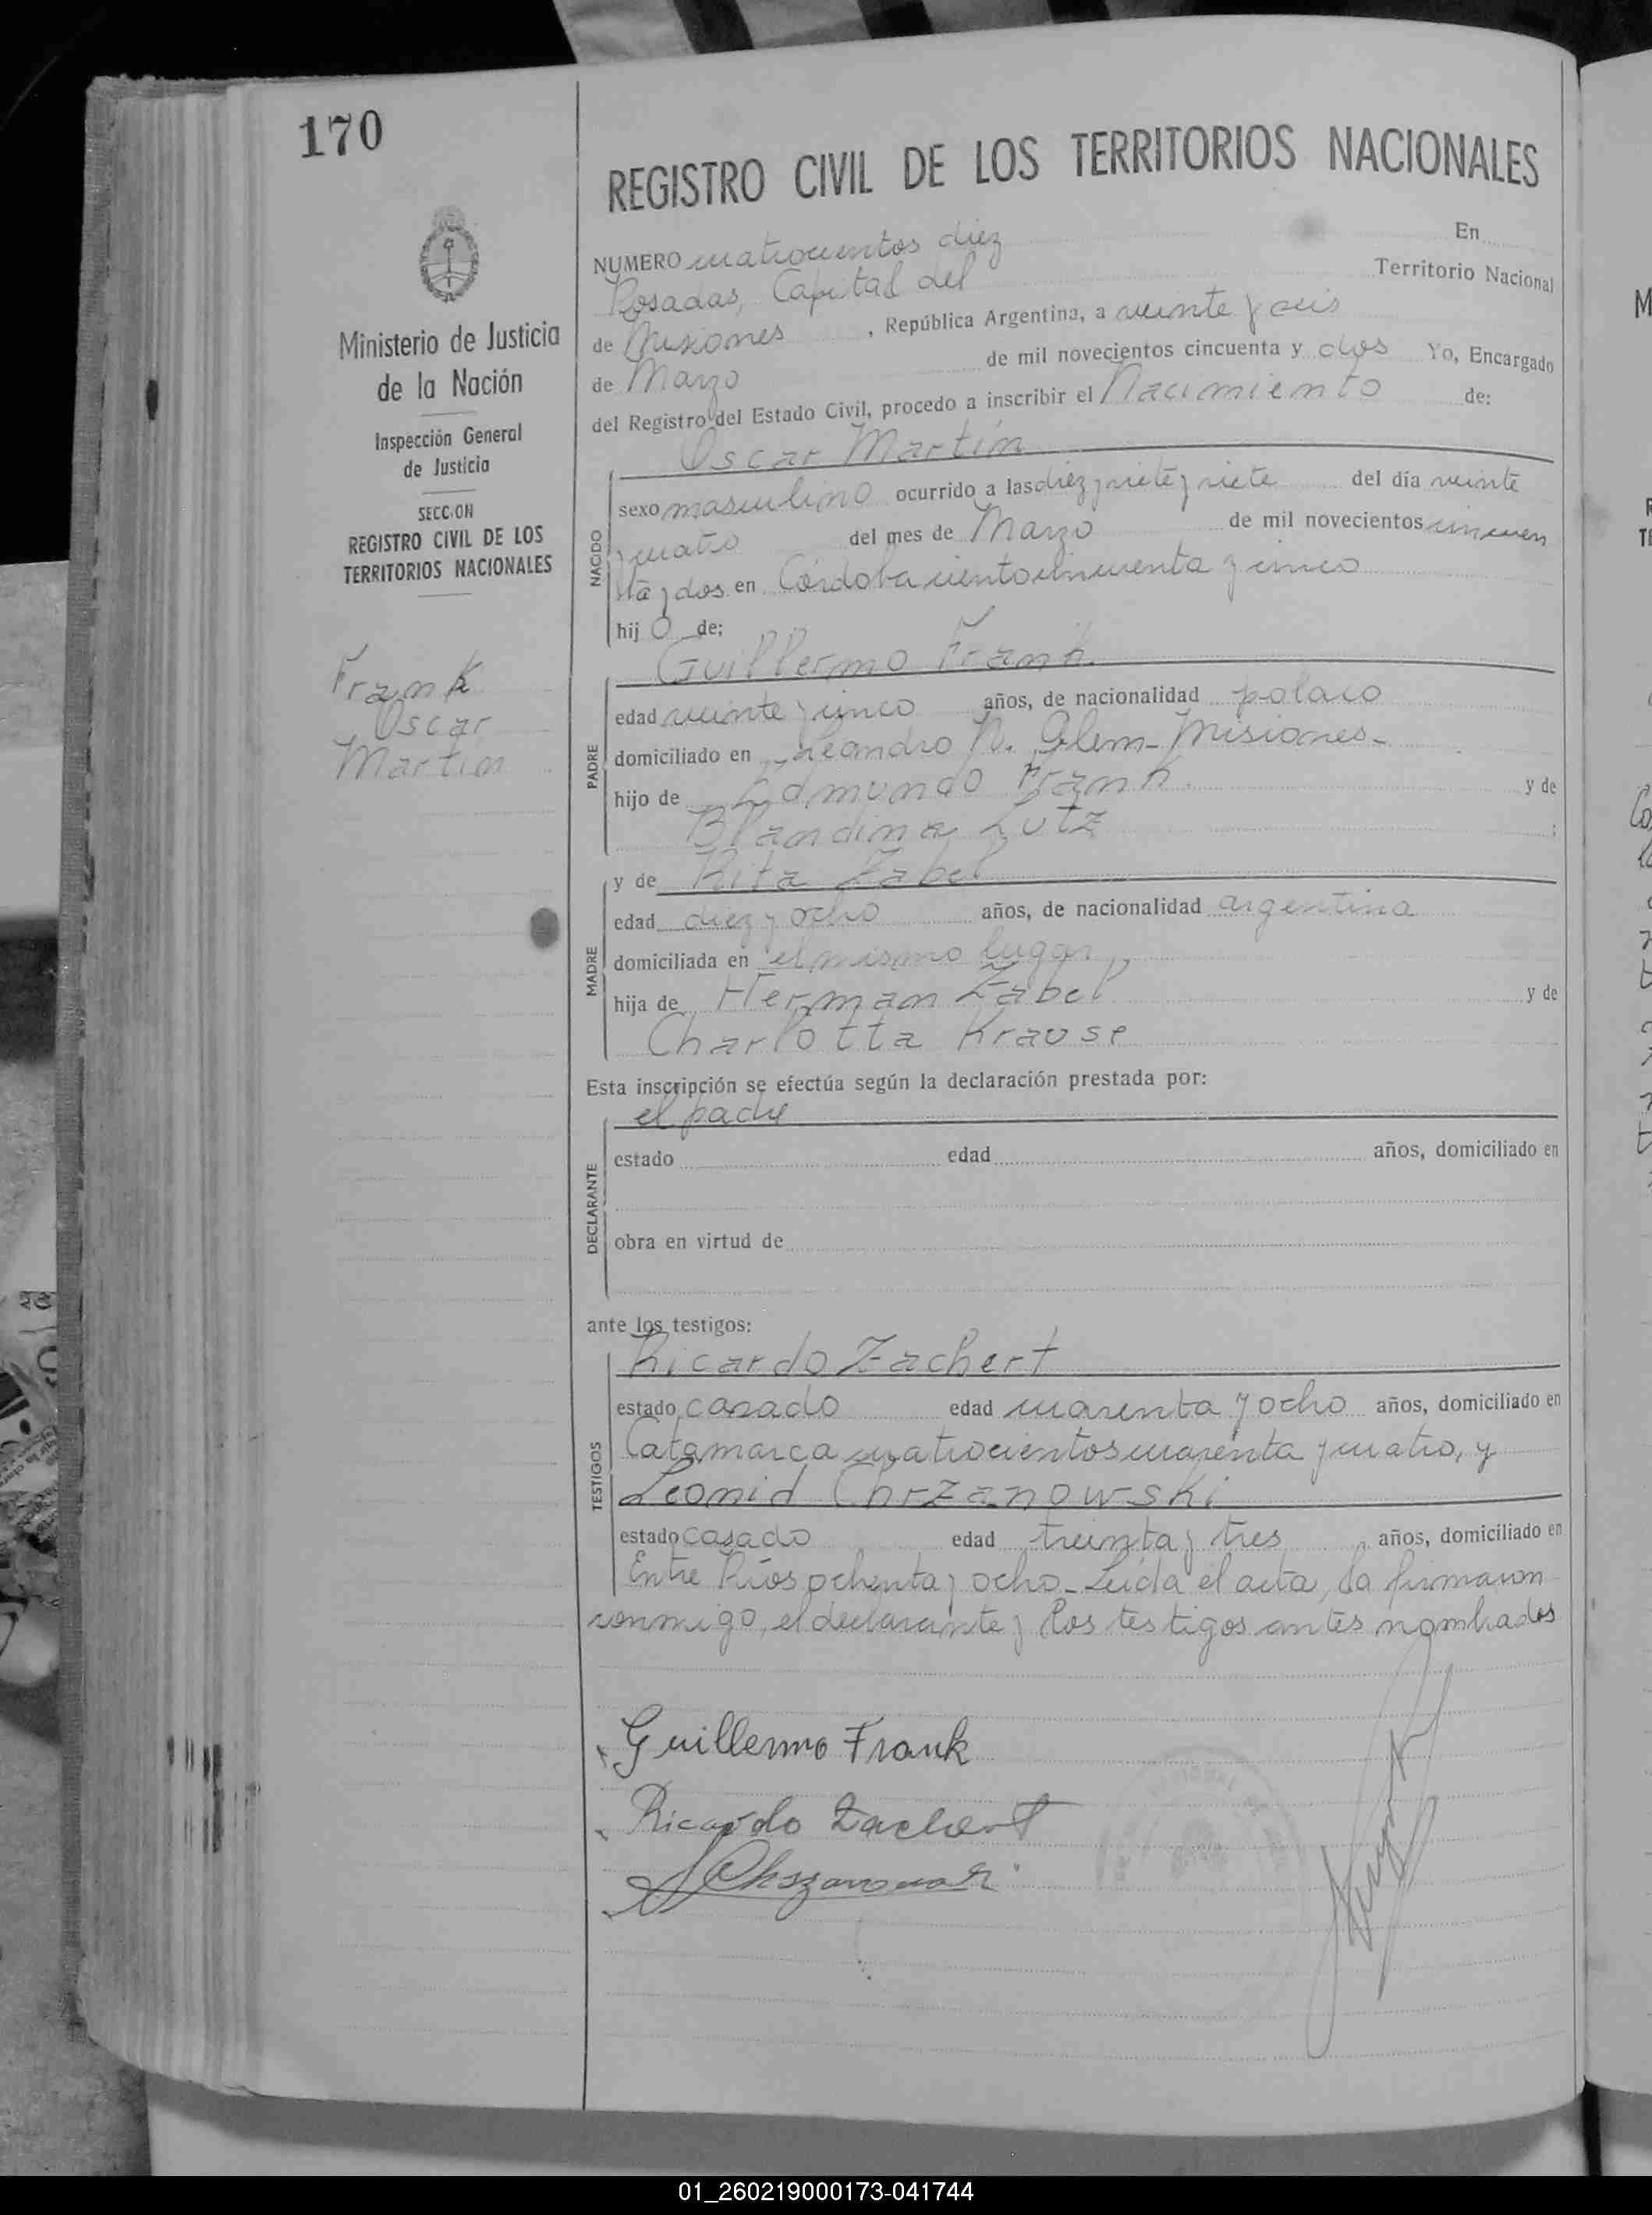 170
REGISTRO CIVIL DE LOS TERRITORIOS NACIONALES
Ministerio de Justicia
de la Nación
Inspección General
de Justicia
SECCION
REGISTRO CIVIL DE LOS
TERRITORIOS NACIONALES
Frank
Oscar
Martín
NUMERO cuatrocientos diez En
Posadas, Capital del Territorio Nacional
de Misiones, República Argentina, a veinte y seis
de Marzo de mil novecientos cincuenta y dos Yo, Encargado
del Registro del Estado Civil, procedo a inscribir el Nacimiento de:
Oscar Martín
NACIDO
sexo masculino ocurrido a las diez y siete y siete del día veinte
y cuatro del mes de Marzo de mil novecientos cincuen
ta y dos en Córdoba ciento cincuenta y cinco
hijo de:
Guillermo Frank
PADRE
edad veinte y cinco años, de nacionalidad polaco
domiciliado en Leandro N. Alem - Misiones -
hijo de Edmundo Frank y de
Blandina Lutz ;
y de Rita Zabel
MADRE
edad diez y ocho años, de nacionalidad argentina
domiciliada en el mismo lugar
hija de Herman Zabel y de
Charlotta Krause
Esta inscripción se efectúa según la declaración prestada por:
el padre
DECLARANTE
estado edad años, domiciliado en
obra en virtud de
ante los testigos:
Ricardo Zachert
TESTIGOS
estado casado edad cuarenta y ocho años, domiciliado en
Catamarca cuatrocientos cuarenta y cuatro, y
Leonid Chrzanowski
estado casado edad treinta y tres años, domiciliado en
Entre Ríos ochenta y ocho - Leída el acta, la firmaron
conmigo, el declarante y los testigos antes nombrados
Guillermo Frank
Ricardo Zachert
01_260219000173-041744